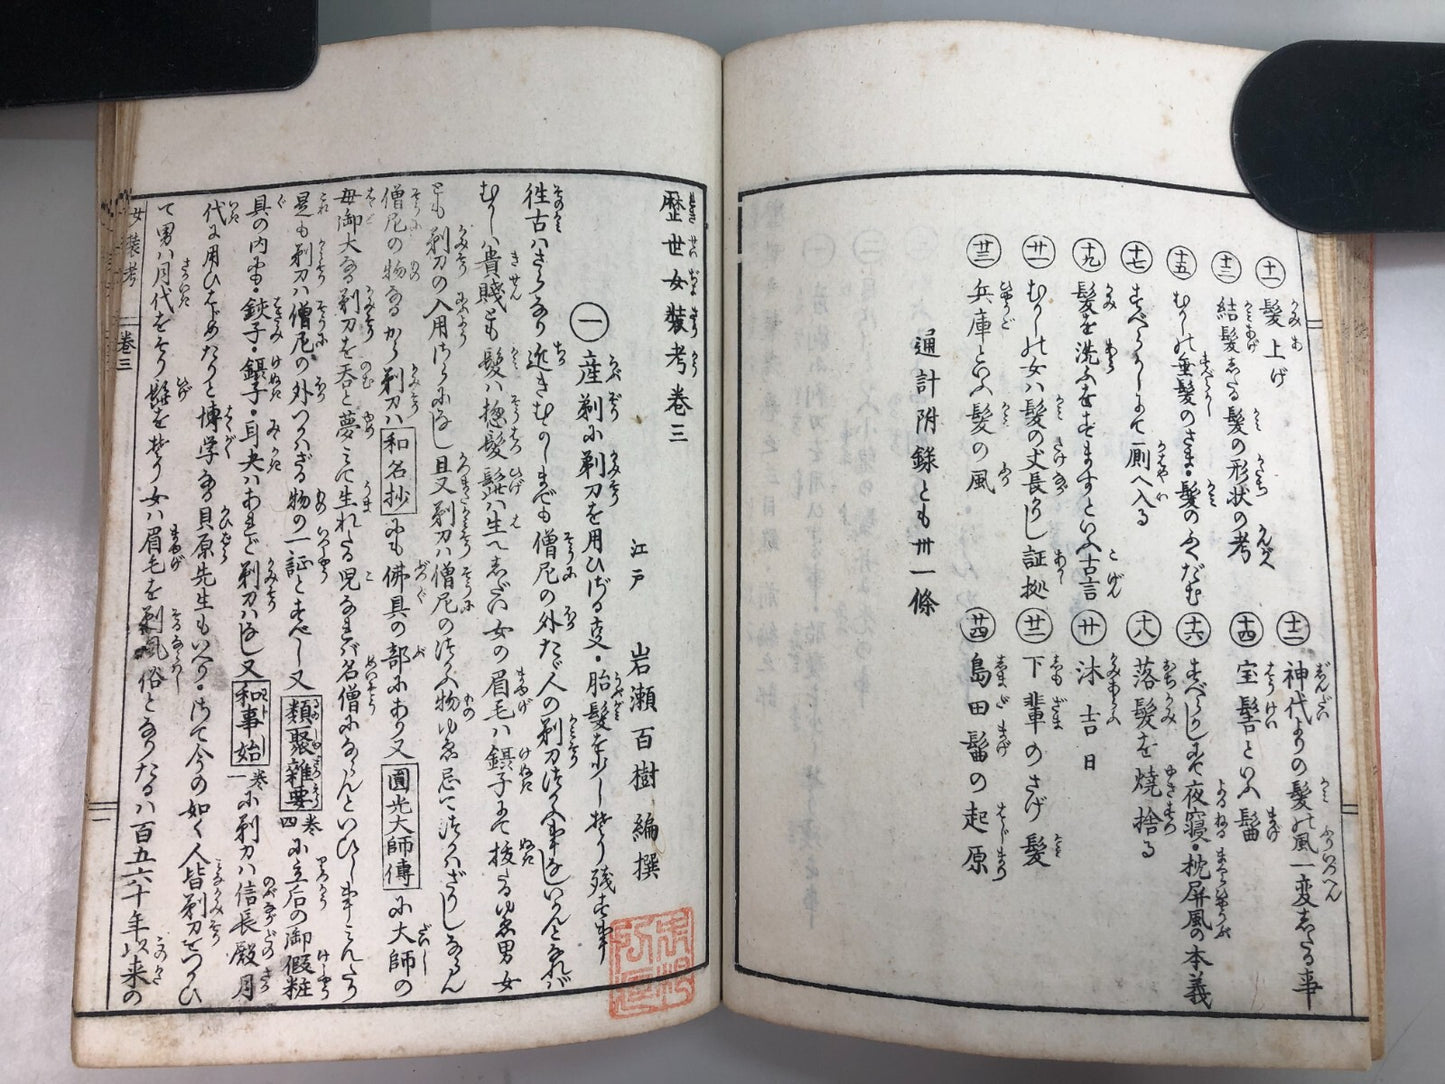 ㊉一 髪上げ
十二 神代よりの髪の風一変したる事
十三 結髪したる髪の形状の考
十四 宝髻といふ髷
十五 むかしの垂髪のさま・髪のふくだむ
十六 すべらかしにて夜寝・枕屏風の本義
十七 すべらかしにて厠へ入る
十八 落髪を焼捨る
十九 髪を洗ふをすますといふ古言
廿 沐吉日
廿一 むかしの女ハ髪の丈長かりし証拠
廿二 下輩のさげ髪
廿三 兵庫といふ髪の風
廿四 島田髷の起原
通計附録とも卅一條
歴世女装考巻三
江戸 岩瀬百樹編撰
一 産剃に剃刀を用ひざる事・胎髪を少し剃り残す事
往古ハさらなり近きむかしまでも僧尼の外たゞ人の剃刀つかふ事なしいかんとなれバ
むかしハ貴賤とも髪ハ惣髪髭ハ生へしだい女の眉毛ハ鑷子にて抜たるゆゑ男女
とも剃刀の入用なし且又剃刀ハ僧尼のつかふ物ゆゑ忌てつかハざりしならん
僧尼の物なるから剃刀ハ和名抄にも佛具の部にあり又圓光大師傳に大師の
母御大なる剃刀を呑と夢みて生れたる児なれバ名僧にならんといひし事みえたり
是も剃刀ハ僧尼の外つかハざる物の一証とすべし又類聚雜要巻四に立后の御假粧
具の内に・鋏子・鑷子・耳夬ハあれど剃刀ハなし又和事始巻一に剃刀ハ信長殿月
代に用ひそめたりと博学なる貝原先生もいへり・さて今の如く人皆剃刀をつかひ
て男ハ月代をそり髭をそり女ハ眉毛を剃風俗となりたるハ百五六十年以来の
女装考 巻三